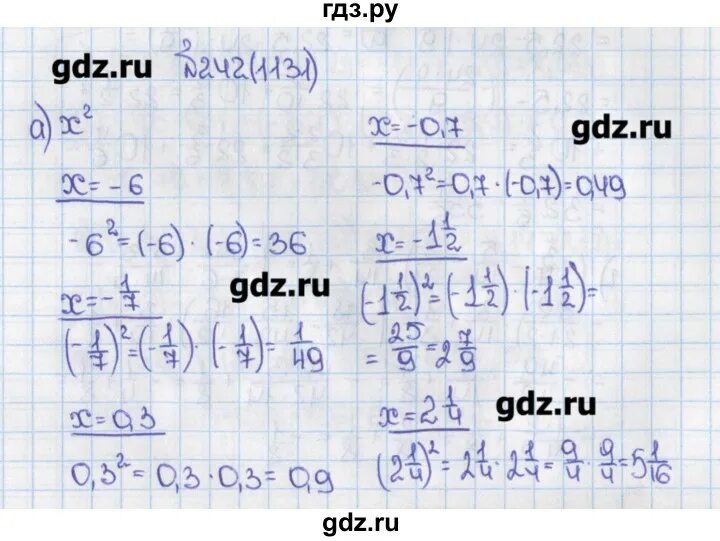 гдз.ру
gdz.ru
№242(1131)
а) x²
x = - 6
-6² = (-6) · (-6) = 36
x = - 1/7
(- 1/7)² = (- 1/7) · (- 1/7) = 1/49
x = 0,3
0,3² = 0,3 · 0,3 = 0,9
x = -0,7
gdz.ru
-0,7² = 0,7 · (-0,7) = 0,49
x = -1 1/2
gdz.ru
(-1 1/2)² = (-1 1/2) · (-1 1/2) =
= 25/9 = 2 7/9
gdz.ru
x = 2 1/4
(2 1/4)² = 2 1/4 · 2 1/4 = 9/4 · 9/4 = 5 1/16
gdz.ru